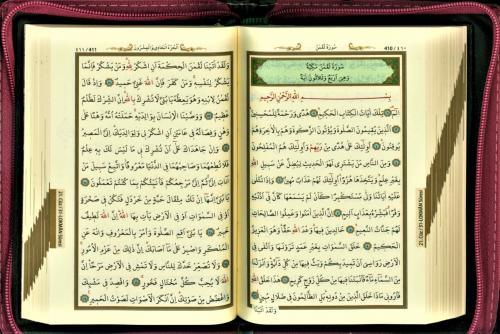 ٤١٠/410
سُورَةُ لُقْمٰنَ
سُورَةُ لُقْمٰنَ مَكِّيَّةٌ
وَهِيَ اَرْبَعٌ وَثَلَاثُونَ اٰيَةً
بِسْمِ اللّٰهِ الرَّحْمٰنِ الرَّحِيمِ
الٓمٓ ۝ تِلْكَ اٰيَاتُ الْكِتَابِ الْحَكِيمِ ۝ هُدًى وَرَحْمَةً لِلْمُحْسِنِينَ ۝
اَلَّذِينَ يُقِيمُونَ الصَّلٰوةَ وَيُؤْتُونَ الزَّكٰوةَ وَهُمْ بِالْاٰخِرَةِ هُمْ
يُوقِنُونَ ۝ اُولٰئِكَ عَلٰى هُدًى مِنْ رَبِّهِمْ وَاُولٰئِكَ هُمُ الْمُفْلِحُونَ ۝
وَمِنَ النَّاسِ مَنْ يَشْتَرِي لَهْوَ الْحَدِيثِ لِيُضِلَّ عَنْ سَبِيلِ اللّٰهِ
بِغَيْرِ عِلْمٍ وَيَتَّخِذَهَا هُزُوًا اُولٰئِكَ لَهُمْ عَذَابٌ مُهِينٌ ۝ وَاِذَا تُتْلٰى عَلَيْهِ
اٰيَاتُنَا وَلّٰى مُسْتَكْبِرًا كَاَنْ لَمْ يَسْمَعْهَا كَاَنَّ فِي اُذُنَيْهِ
وَقْرًا فَبَشِّرْهُ بِعَذَابٍ اَلِيمٍ ۝ اِنَّ الَّذِينَ اٰمَنُوا وَعَمِلُوا الصَّالِحَاتِ
لَهُمْ جَنَّاتُ النَّعِيمِ ۝ خَالِدِينَ فِيهَا وَعْدَ اللّٰهِ حَقًّا وَهُوَ الْعَزِيزُ
الْحَكِيمُ ۝ خَلَقَ السَّمٰوَاتِ بِغَيْرِ عَمَدٍ تَرَوْنَهَا وَاَلْقٰى فِي
الْاَرْضِ رَوَاسِيَ اَنْ تَمِيدَ بِكُمْ وَبَثَّ فِيهَا مِنْ كُلِّ دَابَّةٍ وَاَنْزَلْنَا
مِنَ السَّمَاءِ مَاءً فَاَنْبَتْنَا فِيهَا مِنْ كُلِّ زَوْجٍ كَرِيمٍ ۝ هٰذَا خَلْقُ اللّٰهِ
فَاَرُونِي مَاذَا خَلَقَ الَّذِينَ مِنْ دُونِهِ بَلِ الظَّالِمُونَ فِي ضَلَالٍ مُبِينٍ ۝
وَلَقَدْ اٰتَيْنَا
اَلْجُزْءُ الْحَادِي وَالْعِشْرُونَ
٤١١/411
وَلَقَدْ اٰتَيْنَا لُقْمٰنَ الْحِكْمَةَ اَنِ اشْكُرْ لِلّٰهِ وَمَنْ يَشْكُرْ فَاِنَّمَا
يَشْكُرُ لِنَفْسِهِ وَمَنْ كَفَرَ فَاِنَّ اللّٰهَ غَنِيٌّ حَمِيدٌ ۝ وَاِذْ قَالَ
لُقْمٰنُ لِابْنِهِ وَهُوَ يَعِظُهُ يَا بُنَيَّ لَا تُشْرِكْ بِاللّٰهِ اِنَّ الشِّرْكَ لَظُلْمٌ
عَظِيمٌ ۝ وَوَصَّيْنَا الْاِنْسَانَ بِوَالِدَيْهِ حَمَلَتْهُ اُمُّهُ وَهْنًا عَلٰى
وَهْنٍ وَفِصَالُهُ فِي عَامَيْنِ اَنِ اشْكُرْ لِي وَلِوَالِدَيْكَ اِلَيَّ الْمَصِيرُ ۝
وَاِنْ جَاهَدَاكَ عَلٰى اَنْ تُشْرِكَ بِي مَا لَيْسَ لَكَ بِهِ عِلْمٌ
فَلَا تُطِعْهُمَا وَصَاحِبْهُمَا فِي الدُّنْيَا مَعْرُوفًا وَاتَّبِعْ سَبِيلَ مَنْ
اَنَابَ اِلَيَّ ثُمَّ اِلَيَّ مَرْجِعُكُمْ فَاُنَبِّئُكُمْ بِمَا كُنْتُمْ تَعْمَلُونَ ۝
يَا بُنَيَّ اِنَّهَا اِنْ تَكُ مِثْقَالَ حَبَّةٍ مِنْ خَرْدَلٍ فَتَكُنْ فِي صَخْرَةٍ
اَوْ فِي السَّمٰوَاتِ اَوْ فِي الْاَرْضِ يَأْتِ بِهَا اللّٰهُ اِنَّ اللّٰهَ لَطِيفٌ
خَبِيرٌ ۝ يَا بُنَيَّ اَقِمِ الصَّلٰوةَ وَأْمُرْ بِالْمَعْرُوفِ وَانْهَ عَنِ
الْمُنْكَرِ وَاصْبِرْ عَلٰى مَا اَصَابَكَ اِنَّ ذٰلِكَ مِنْ عَزْمِ الْاُمُورِ ۝
وَلَا تُصَعِّرْ خَدَّكَ لِلنَّاسِ وَلَا تَمْشِ فِي الْاَرْضِ مَرَحًا اِنَّ
اللّٰهَ لَا يُحِبُّ كُلَّ مُخْتَالٍ فَخُورٍ ۝ وَاقْصِدْ فِي مَشْيِكَ
وَاغْضُضْ مِنْ صَوْتِكَ اِنَّ اَنْكَرَ الْاَصْوَاتِ لَصَوْتُ الْحَمِيرِ ۝